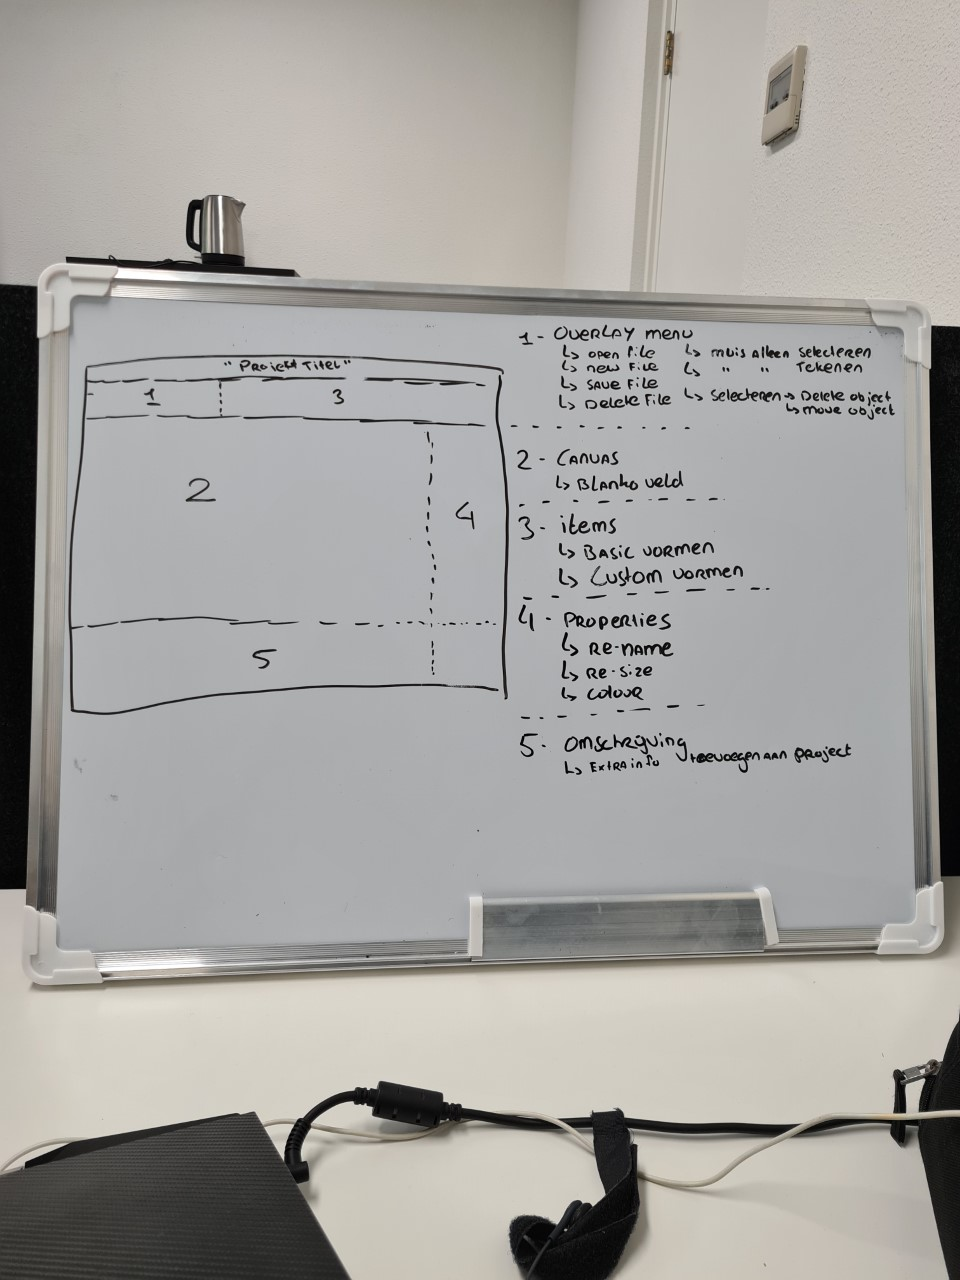 "Projekt Titel"
1
3
2
4
5
1- Overlay menu
↳ open file ↳ muis alleen selecteren
↳ new File ↳ " " Tekenen
↳ save File
↳ Delete File ↳ Selecteren → Delete object
↳ move object
2- Canvas
↳ Blanko veld
3- items
↳ Basic vormen
↳ Custom vormen
4- Properties
↳ Re-name
↳ Re-size
↳ colour
5- omschrijving
↳ Extra info toevoegen aan project